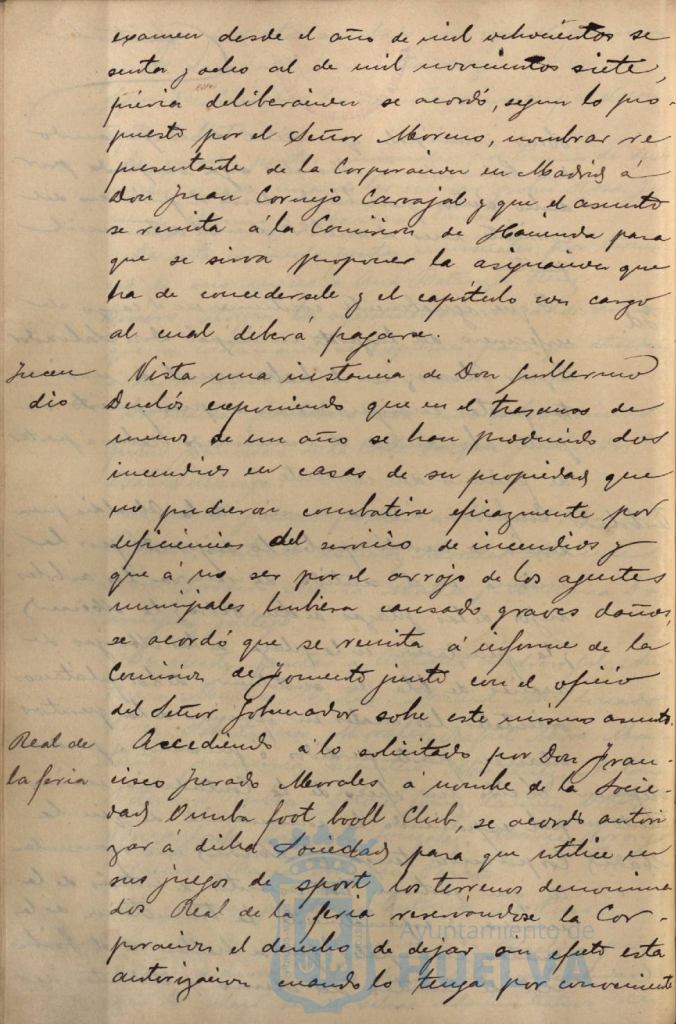 examen desde el año de mil ochocientos se
senta y ocho al de mil novecientos siete,
previa deliberación se acordó, segun lo pro
puesto por el Señor Moreno, nombrar re
presentante de la Corporacion en Madrid á
Don Juan Cornejo Carvajal y que el asunto
se remita á la Comision de Hacienda para
que se sirva proponer la asignacion que
ha de concedersele y el capítulo con cargo
al cual deberá pagarse.
Incen
dio
Vista una instancia de Don Guillermo
Duclós exponiendo que en el trascurso de
menos de un año se han producido dos
incendios en casas de su propiedad que
no pudieron combatirse eficazmente por
deficiencias del servicio de incendios y
que á no ser por el arrojo de los agentes
municipales hubiera causado graves daños,
se acordó que se remita á informe de la
Comision de Fomento junto con el oficio
del Señor Gobernador sobre este mismo asunto.
Real de
la feria
Accediendo á lo solicitado por Don Fran-
cisco Jurado Morales á nombre de la Socie-
dad Onuba foot booll Club, se acordó autori
zar á dicha Sociedad para que utilice en
sus juegos de sport los terrenos denomina
dos Real de la feria reservándose la Cor-
poracion el derecho de dejar sin efecto esta
autorizacion cuando lo tenga por conveniente
Ayuntamiento de
HUELVA